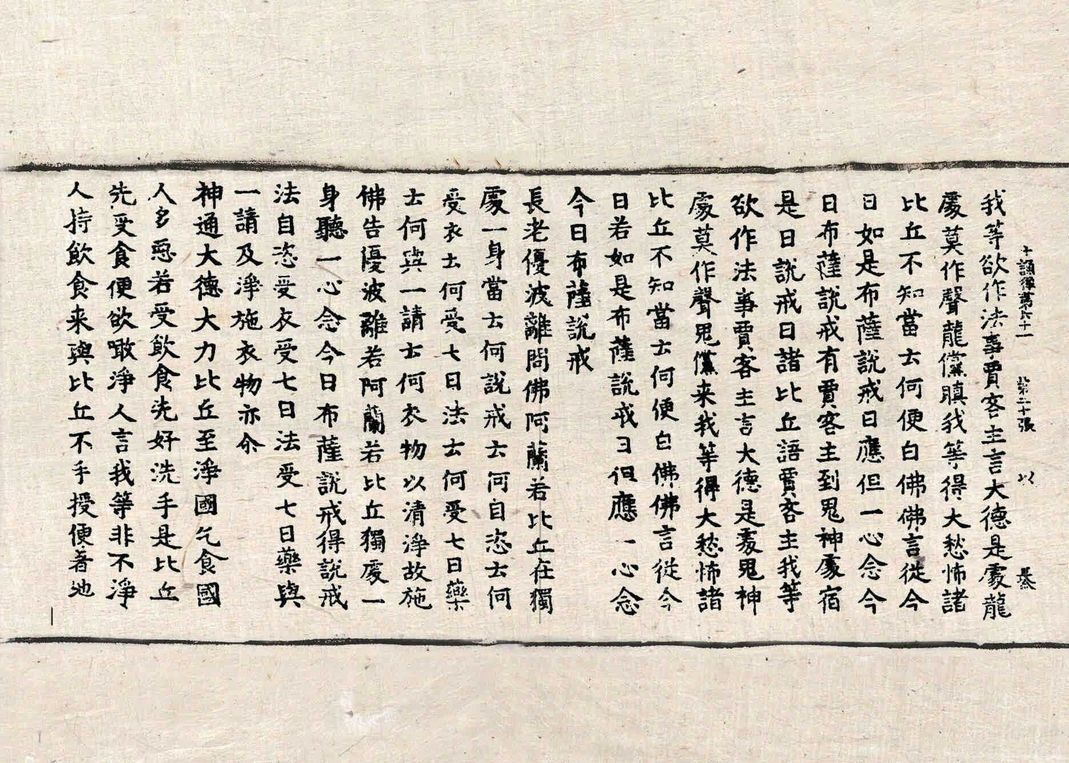 十誦律第六十一 第二十張 以
我等欲作法事賈客主言大德是處龍
處莫作聲龍儻瞋我等得大愁怖諸
比丘不知當云何便白佛佛言從今
日如是布薩說戒日應但一心念今
日布薩說戒有賈客主到鬼神處宿
是日說戒日諸比丘語賈客主我等
欲作法事賈客主言大德是處鬼神
處莫作聲鬼儻来我等得大愁怖諸
比丘不知當云何便白佛佛言從今
日若如是布薩說戒日但應一心念
今日布薩說戒
長老優波離問佛阿蘭若比丘在獨
處一身當云何說戒云何自恣云何
受衣云何受七日法云何受七日藥
云何與一請云何衣物以清淨故施
佛告優波離若阿蘭若比丘獨處一
身聽一心念今日布薩說戒得說戒
法自恣受衣受七日法受七日藥與
一請及淨施衣物亦尒
神通大德大力比丘至淨國乞食國
人多惡若受飲食先好洗手是比丘
先受食便欲噉淨人言我等非不淨
人持飲食来與比丘不手授便著地